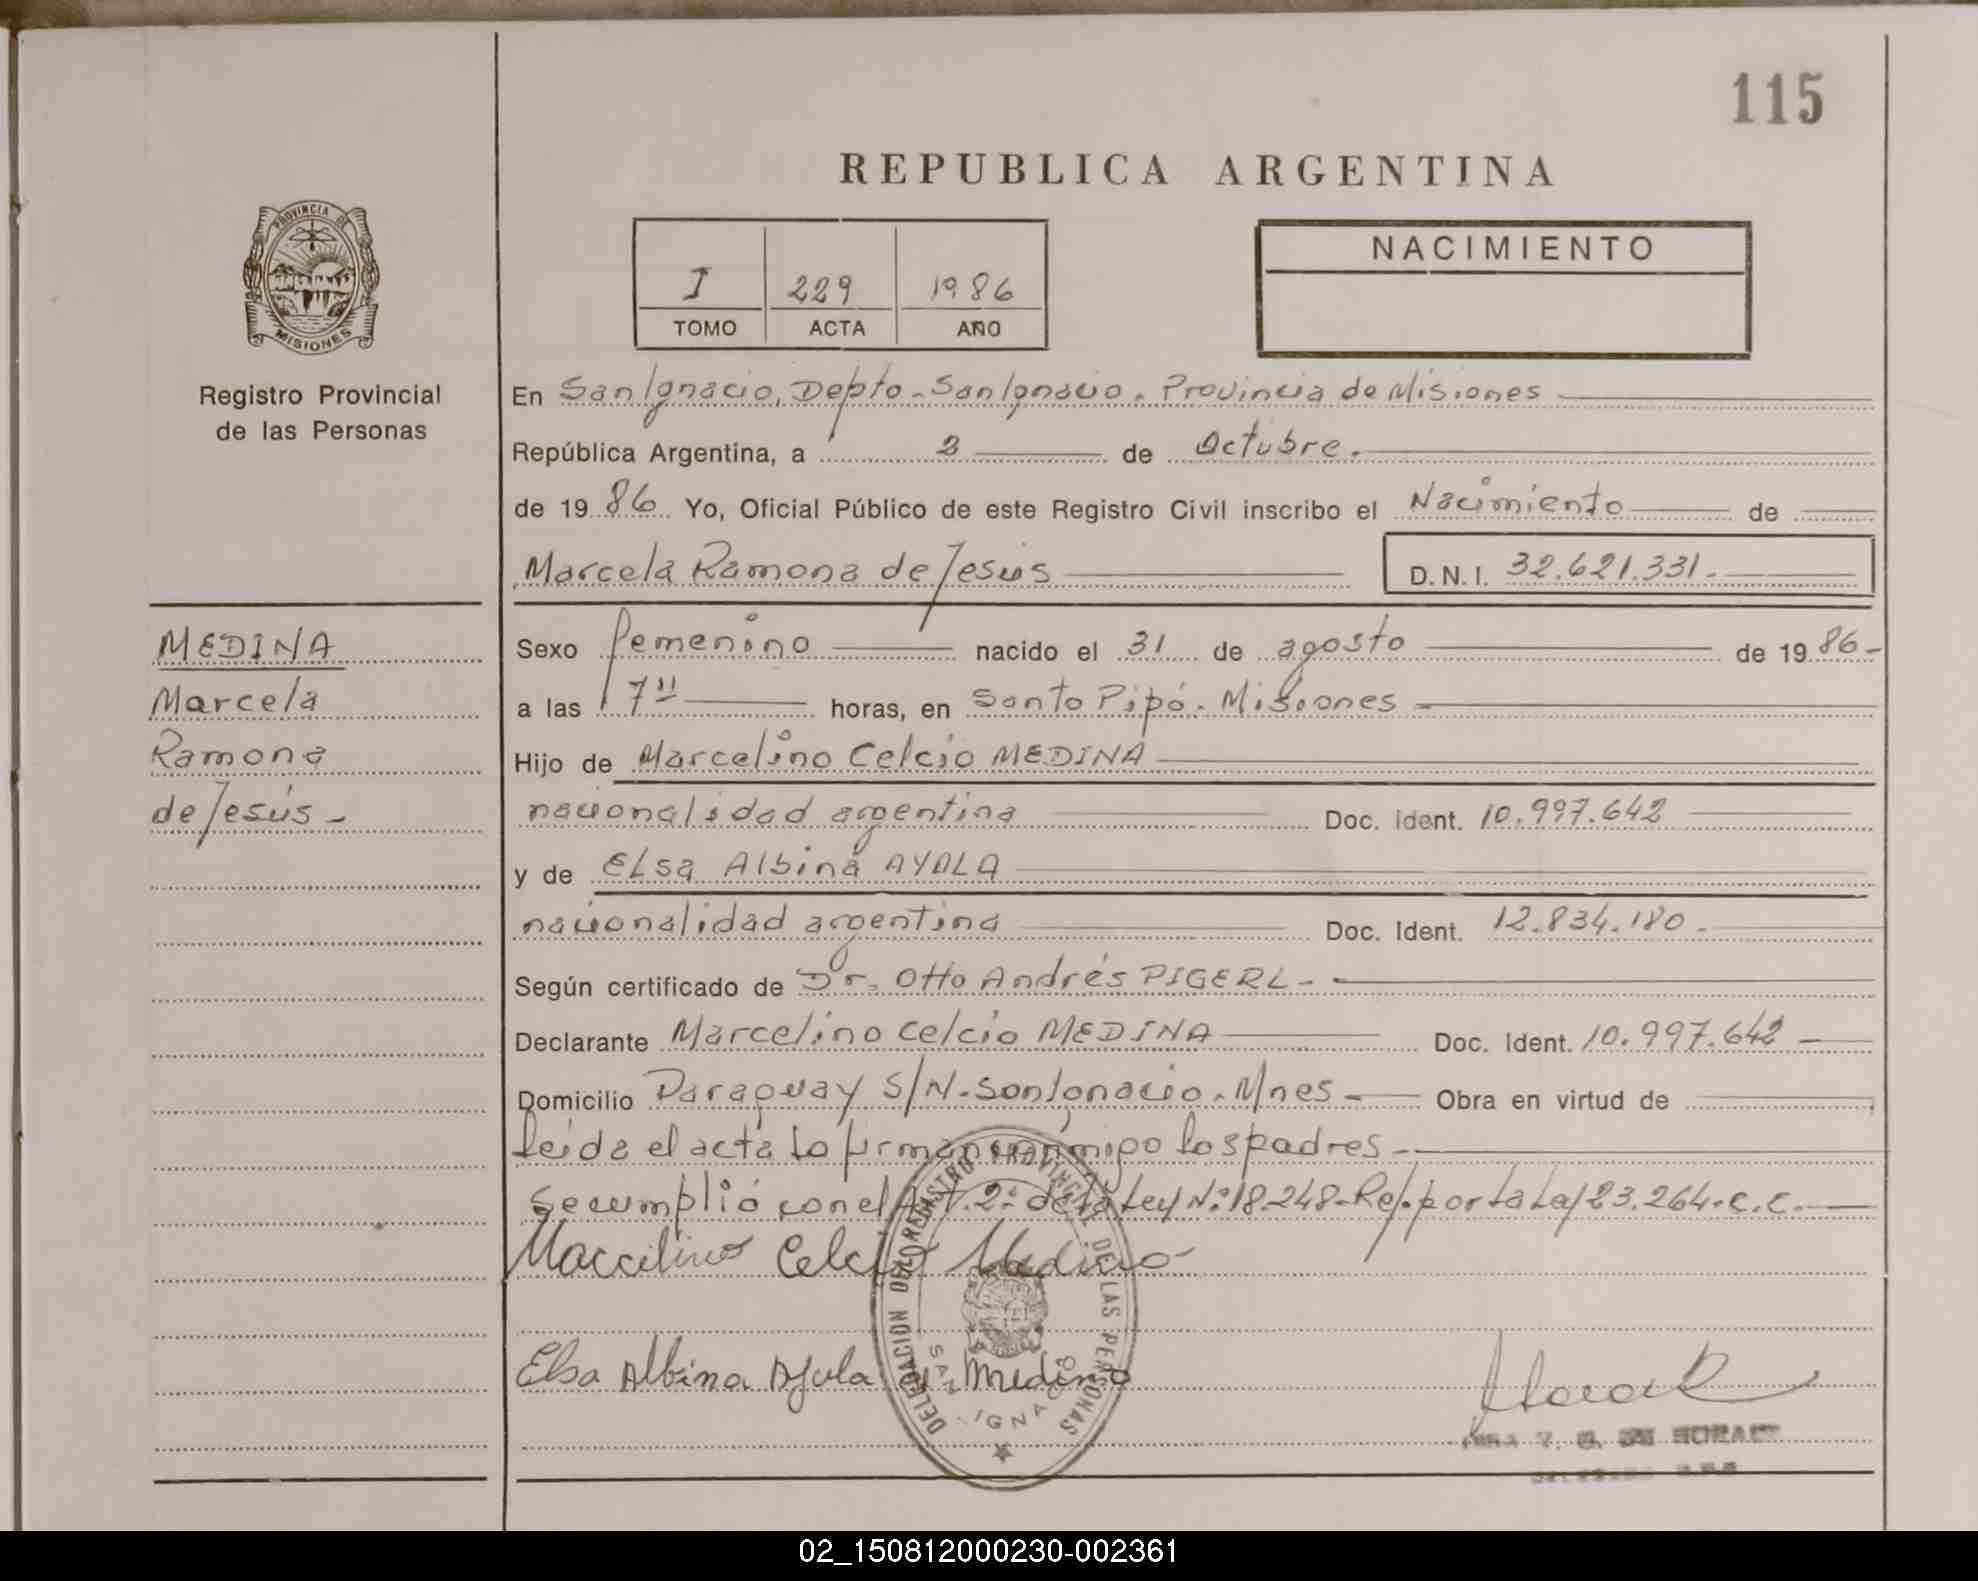 115
REPUBLICA ARGENTINA
PROVINCIA DE
MISIONES
Registro Provincial
de las Personas
I 229 1986
TOMO ACTA AÑO
NACIMIENTO
En San Ignacio, Depto. San Ignacio. Provincia de Misiones
República Argentina, a 2 de Octubre.
de 19 86 Yo, Oficial Público de este Registro Civil inscribo el Nacimiento de
Marcela Ramona de Jesús D.N.I. 32.621.331.
MEDINA
Marcela
Ramona
de Jesús -
Sexo femenino nacido el 31 de agosto de 19 86-
a las 7 horas, en Santo Pipó. Misiones
Hijo de Marcelino Celcio MEDINA
nacionalidad argentina Doc. Ident. 10.997.642
y de ELsa Albina AYALA
nacionalidad argentina Doc. Ident. 12.834.180.
Según certificado de Dr. Otto Andrés PIGERL-
Declarante Marcelino Celcio MEDINA Doc. Ident. 10.997.642
Domicilio Paraguay S/N. San Ignacio. Mnes Obra en virtud de
Leída el acta lo firman conmigo los padres
Se cumplió con el Art. 2º de la Ley Nº 18.248-Ref. por la Ley 23.264. C.C.
Marcelino Celcio Medina
Elsa Albina Ayala de Medina
DELEGACION DEL REGISTRO PROVINCIAL DE LAS PERSONAS
SAN IGNACIO
02_150812000230-002361